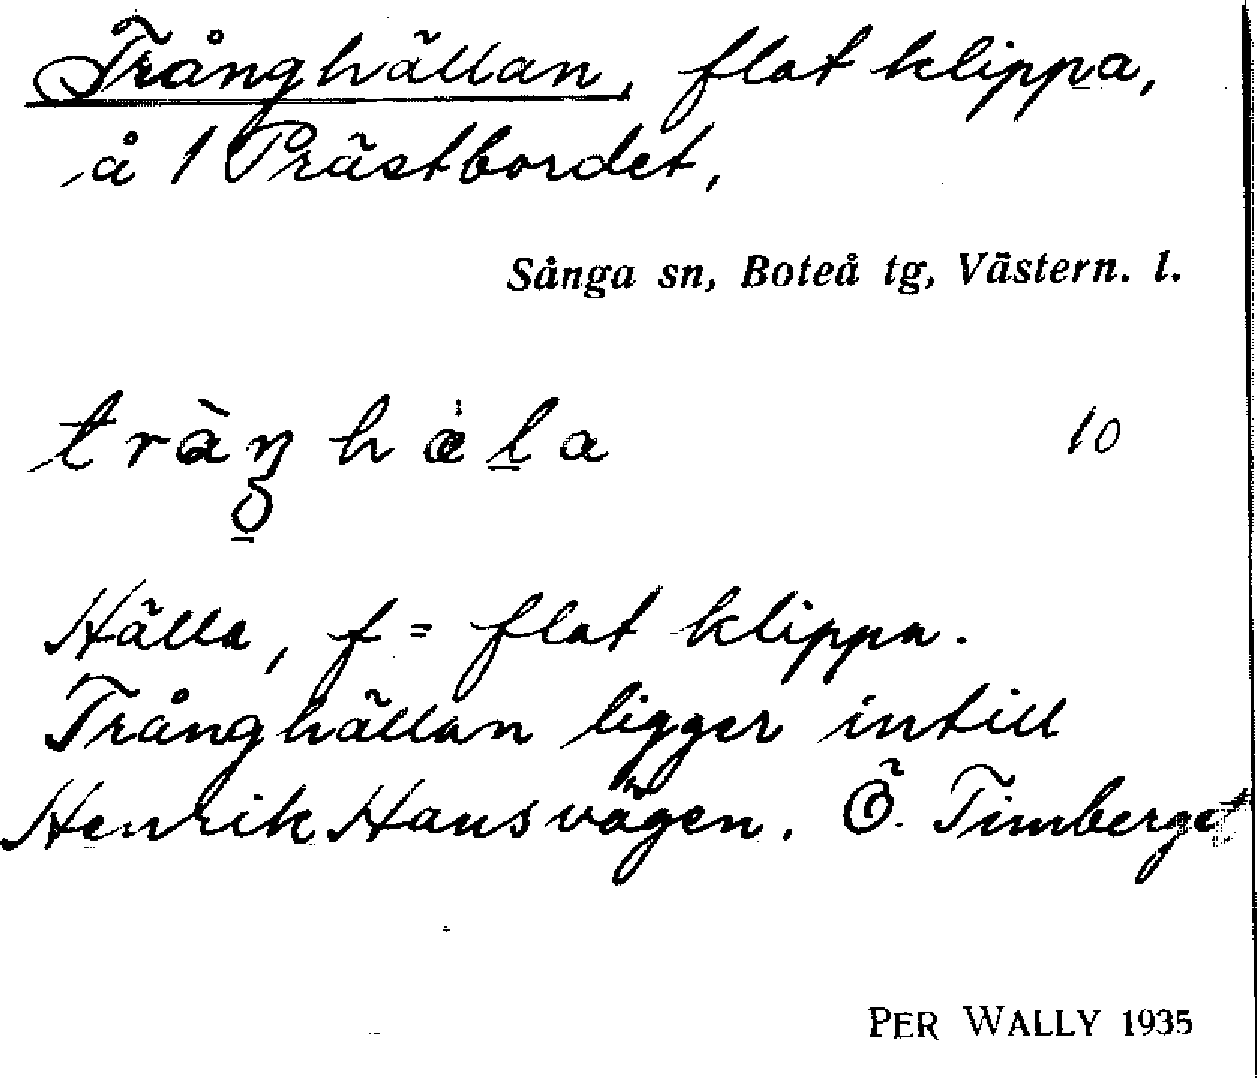 Trånghällan, flat klippa,
å 1 Prästbordet,
Sånga sn, Boteå tg, Västern. l.
10
Hälla, f = flat klippa.
Trånghällan ligger intill
Henrik Hansvägen. Ö. Timberget
PER WALLY 1935